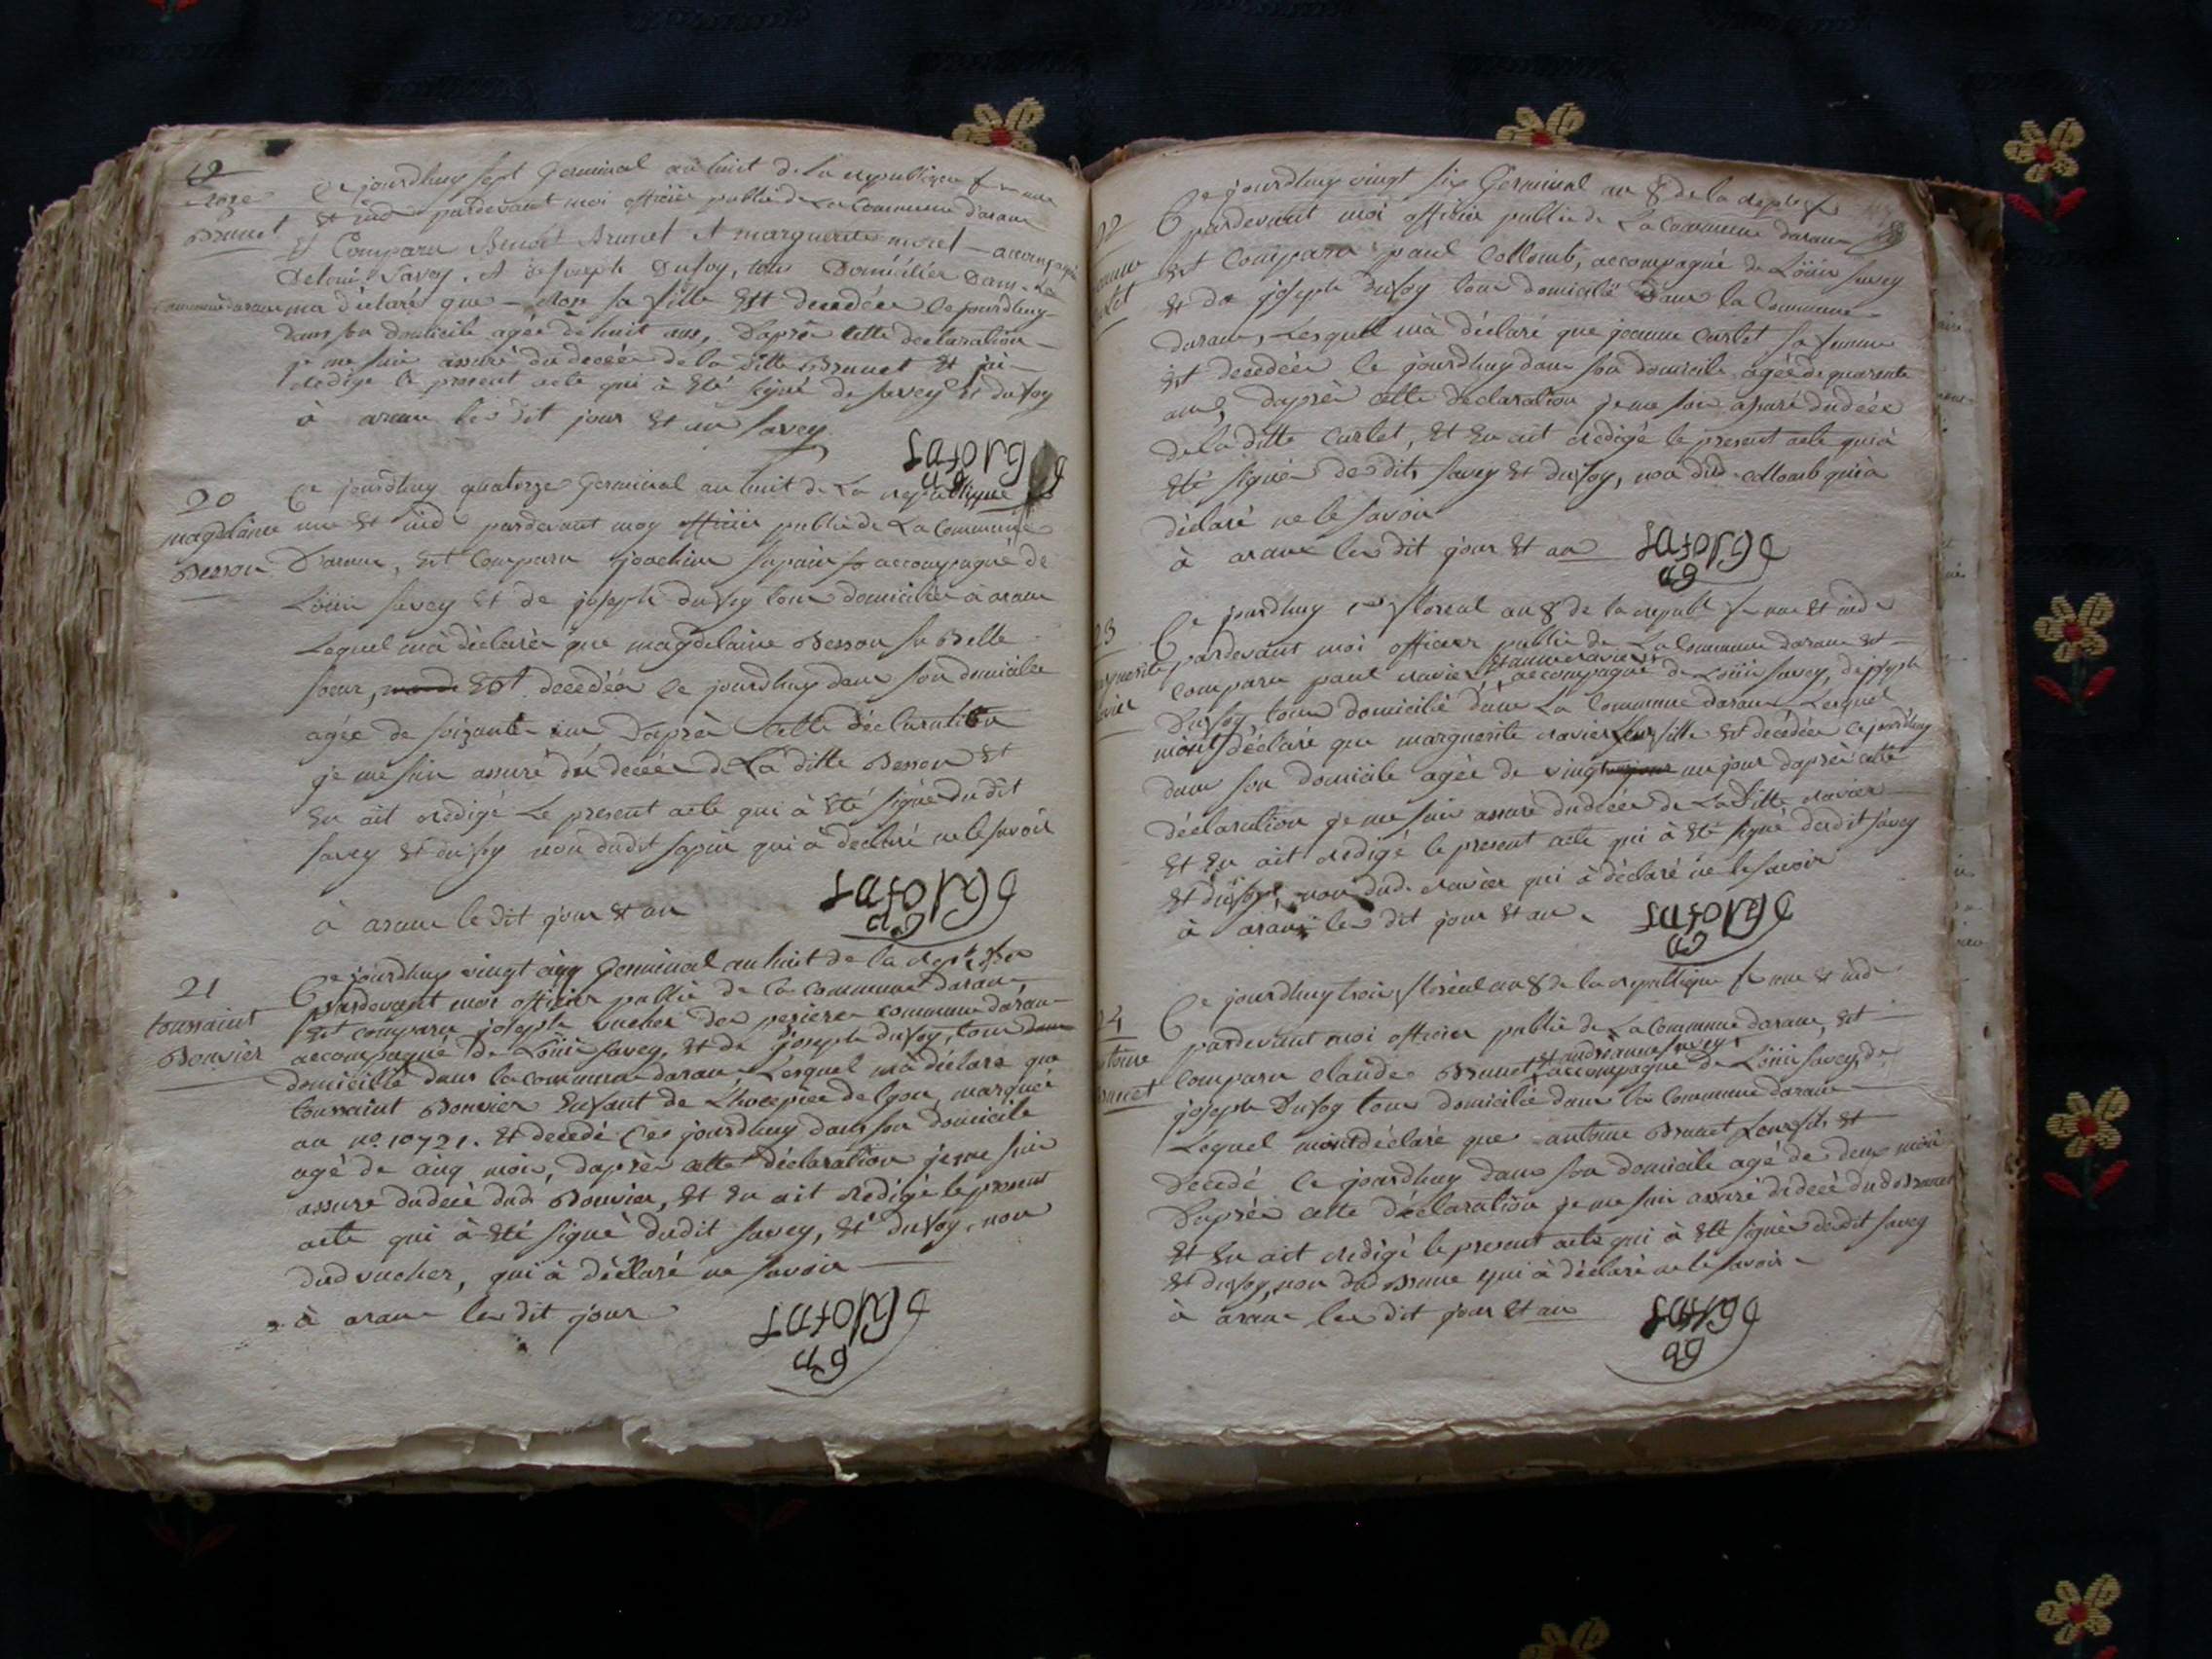 19
roze
Brunet
Ce jourdhuy sept Germinal an huit de la republique f une
et ind pardevant moi officier public de La Commune daranc
Est Comparu Benoit Brunet et marguerite moret accompagné
De loüis Savey, et de joseph Dufoy, tous Domiciliés Dans La
Commune daranc ma déclaré que roze sa fille Est decedée ce jourdhuy
dans son domicile agée de huit ans, Daprès cette declaration
je me suis assuré du decée de la ditte Brunet Et jai
redige le present acte qui à Eté signé de savey Et dufoy
à aranc les dit jour Et an Savey
Laforge
ag
20
magdelaine
Besson
Ce jourdhuy quatorze Germinal an huit de La republique f
une Et ind pardevant moy officier public de La Commune
Daranc, Est Comparu joachim sapin accompagné de
Loüis savey Et de joseph dufoy tous domiciliés à aranc
Lequel mà déclaré que magdelaine Besson sa Belle
soeur, Est decedée ce jourdhuy dans son domicile
agée de soixante ans Daprès cette déclaration
je me suis assuré du decée de La ditte Besson Et
En ait redigé Le present acte qui à Eté signé dudit
savey Et dufoy non dudit sapin qui à declaré ne le savoir
à aranc le dit jour Et an
Laforge
ag
21
toussaint
Bonvier
Ce jourdhuy vingt cinq Germinal an huit de la rep
pardevant moi officier public de la commune daranc
Est comparu joseph vucher des pezieres commune daranc
accompagné de Loüis savey, Et de joseph dufoy, tous
domicilié dans la commune daranc Lesquel mà déclaré que
toussaint Bonvier Enfant de Lhospice de lyon, marqué
au no. 10721. Et decedé Ce jourdhuy dans son domicile
agé de cinq mois, daprès cette déclaration je me suis
assuré du decé dud Bonvier, Et En ait redigé le present
acte qui à Eté signé dudit savey, Et dufoy, non
dud vucher, qui à déclaré ne savoir
à aranc les dit jour
Laforge
ag
22
Ce jourdhuy vingt six Germinal an 8 de la repub f
pardevant moi officier public de La Commune daranc
Est Comparu paul Collomb, accompagné de Loüis savey
Et de joseph dufoy tous domicilié dans la Commune
daranc, Lesquel mà déclaré que jeanne Curlet sa femme
Est decedée le jourdhuy dans son domicile agée de quarante
ans, Daprès cette déclaration je me suis assuré du decée
de la ditte Curlet, Et En ait redigé le present acte qui à
Eté signé de dits savey Et dufoy, non dud Collomb qui à
déclaré ne le savoir
à aranc les dit jour Et an
Laforge
ag
23
Ce jourdhuy floréal an 8 de la republ f une Et ind
pardevant moi officier public de La Commune daranc Est
Et anne ravier
Comparu paul ravier, accompagné de Loüis savey, de joseph
Dufoy, tous domicilié dans La Commune daranc Lesquel
mont déclaré que marguerite ravier leur fille Est decedée ce jourdhuy
dans son domicile agée de vingt un jour daprès cette
déclaration je me suis assuré du decée de La ditte ravier
Et En ait redigé le present acte qui à Eté signé desdit savey
Et dufoy, non dud. ravier qui à déclaré ne le savoir
à aranc les dit jour Et an
Laforge
ag
24
Ce jourdhuy trois floréal an 8 de la republique f une Et ind
pardevant moi officier public de La Commune daranc, Est
Et andréanne savey
Comparu claude Brunet, accompagné de Loüis savey, de
joseph Dufoy tous domicilié dans la Commune daranc
Lequel mont déclaré que antoine Brunet Leur fils Est
Decedé ce jourdhuy dans son domicile agé de deux mois
Daprès cette déclaration je me suis assuré du decé dud Brunet
Et En ait redigé le present acte qui à Eté signé desdit savey
Et dufoy, non dud Brune qui à déclaré ne le savoir
à aranc les dit jour Et an
Laforge
ag